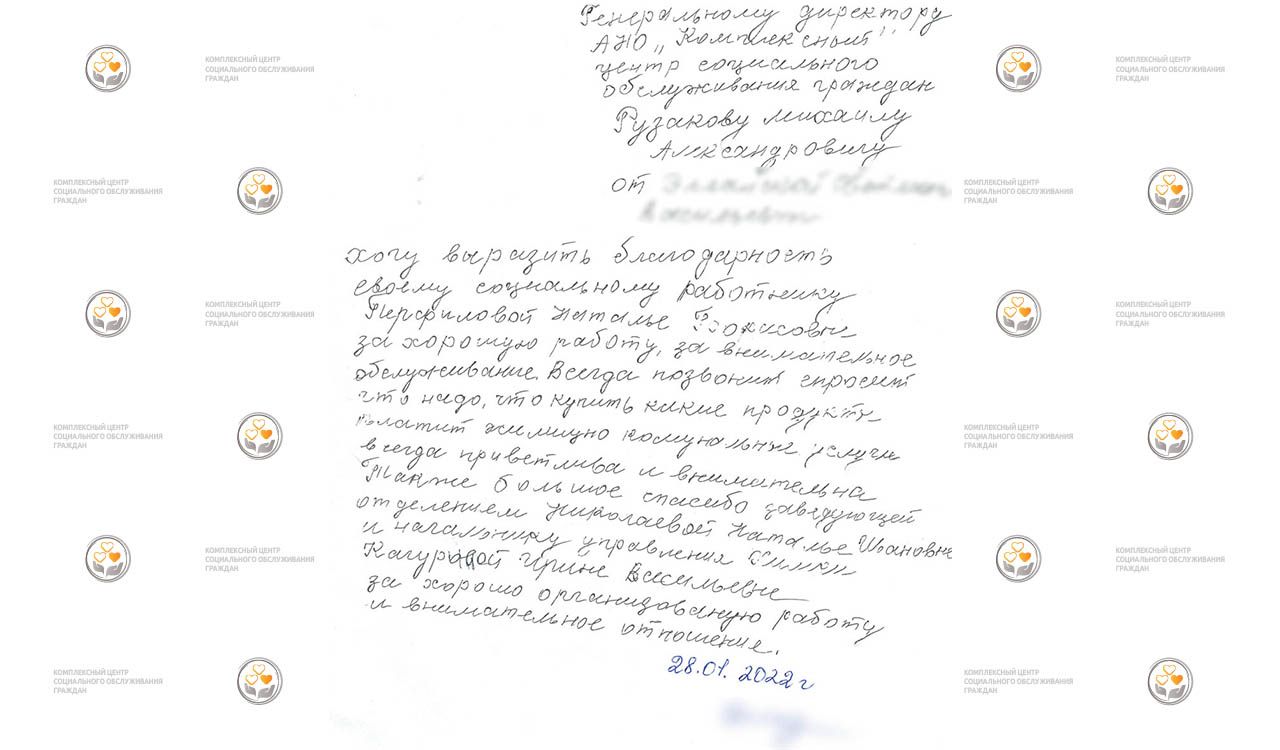 Генеральному директору
АНО „Комплексный"
центр социального
обслуживания граждан
Рузакову Михаилу
Александровичу
от
хочу выразить благодарность
своему социальному работнику
Перфиловой Наталье Борисовне
за хорошую работу, за внимательное
обслуживание. Всегда позвонит спросит
что надо, что купить какие продукты
платит жилищно комунальные услуги
всегда приветлива и внимательна
Также большое спасибо заведующей
отделением Николаевой Наталье Ивановне
и начальнику управления Химки
Качуровой Ирине Васильевне
за хорошо организованую работу
и внимательное отношение.
28.01.2022г
КОМПЛЕКСНЫЙ ЦЕНТР
СОЦИАЛЬНОГО ОБСЛУЖИВАНИЯ
ГРАЖДАН